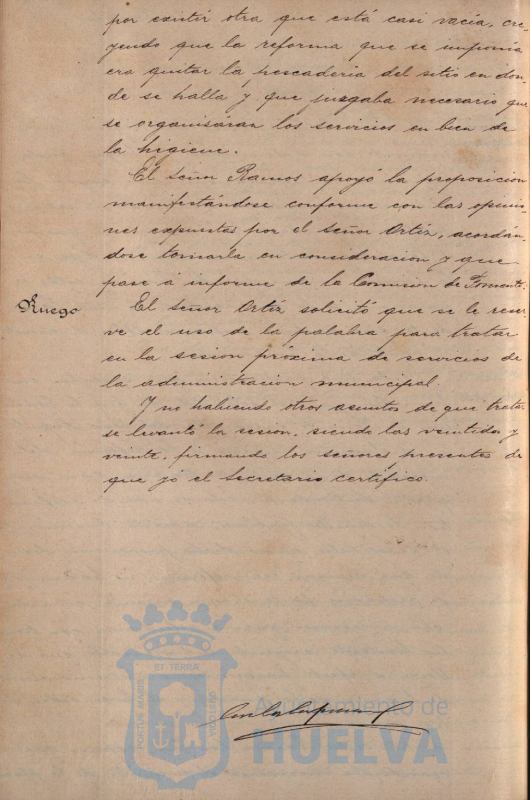 por existir otra que está casi vacía, cre-
yendo que la reforma que se imponía
era quitar la pescaderia del sitio en don-
de se halla y que juzgaba necesario que
se organisáran los servicios en bien de
la higiene.
El señor Ramos apoyó la proposicion
manifestándose conforme con las opinio-
nes expuestas por el señor Ortiz, acordán-
dose tomarla en consideracion y que
pase á informe de la Comision de Fomento.
Ruego
El señor Ortiz solicitó que se le reser-
ve el uso de la palabra para tratar
en la sesion próxima de servicios de
la administracion municipal.
Y no habiendo otros asuntos de que tratar
se levantó la sesion, siendo las veintidos y
veinte, firmando los señores presentes de
que yó el Secretario certifico.
PORTUS MARIS
ET TERRÆ
CUSTODIA
Ayuntamiento de
HUELVA